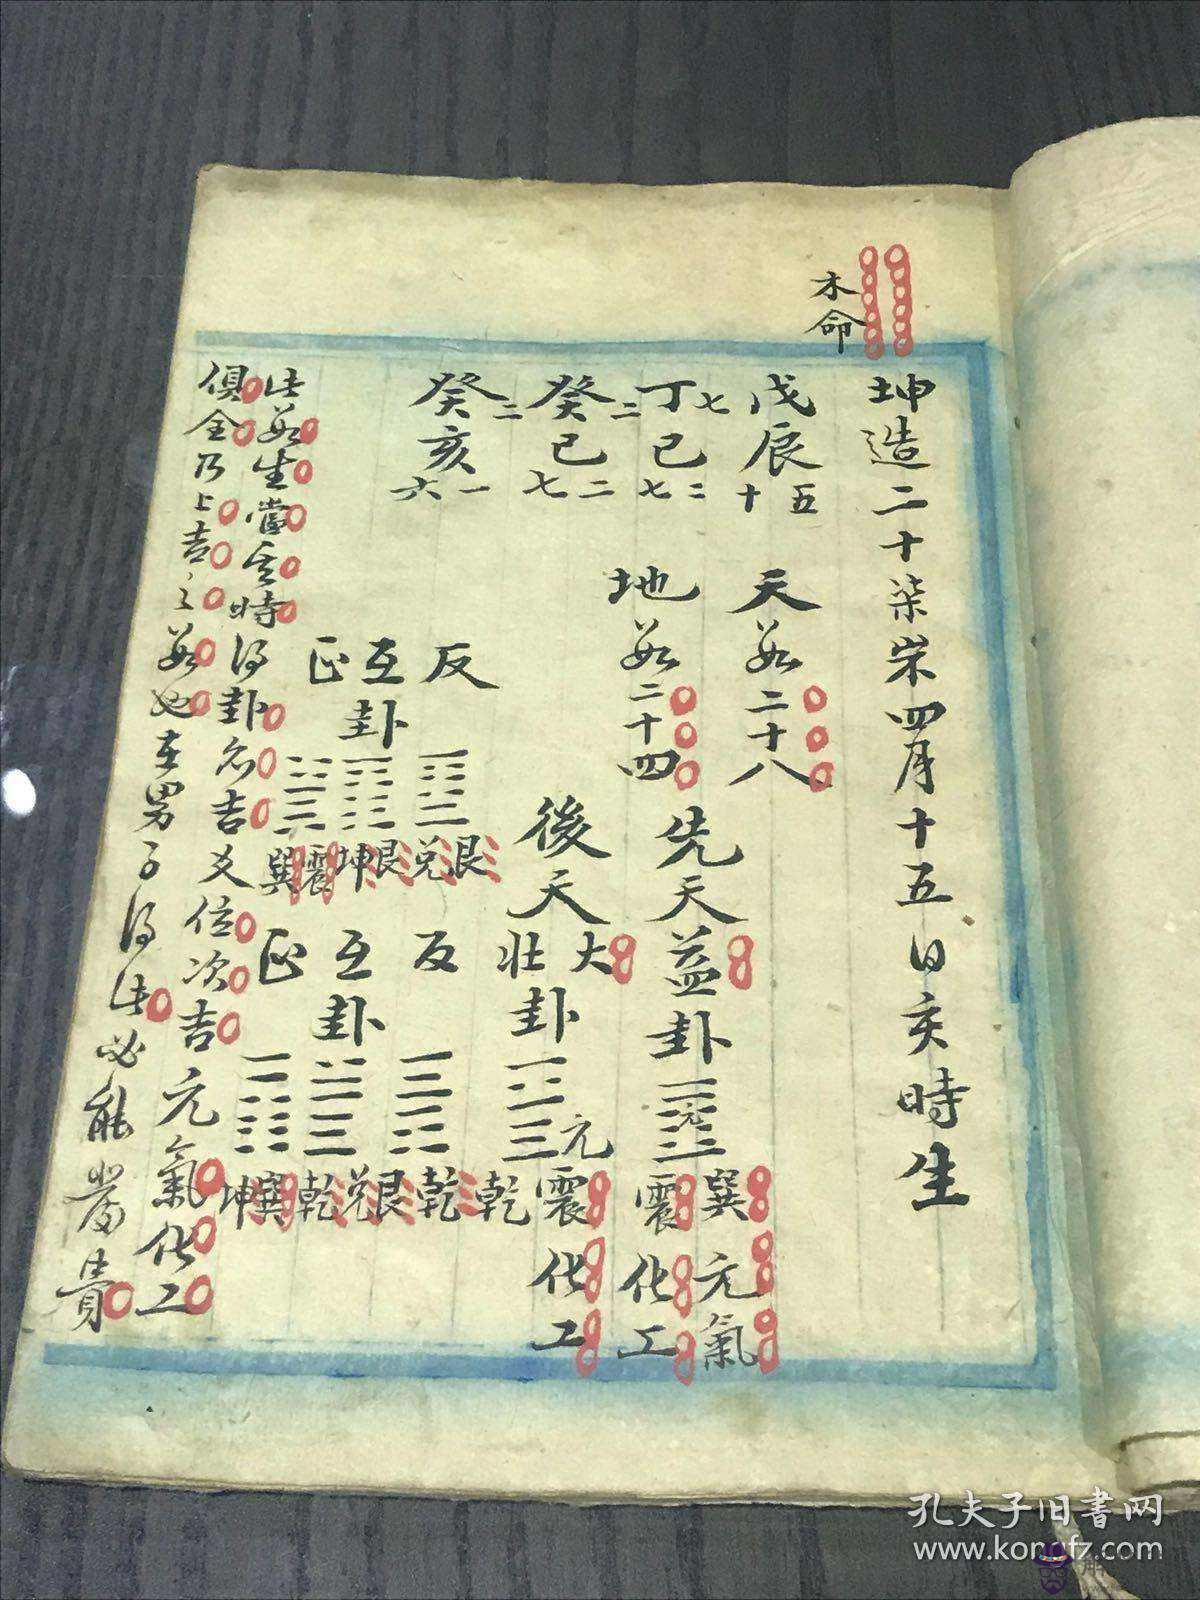 木命
坤造二十柒岁四月十五日亥時生
戊辰 五十
丁七巳 二七
癸二巳 二七
癸二亥 一六
天数二十八
地数二十四
先天益卦 元 巽震 元氣 化工
後天大壯卦 元 震乾 化工
反 艮兑
互卦 艮坤
正 震巽
反 乾乾
互卦 艮兑乾
正 巽坤
此数生當其時得卦名吉爻位次吉元氣化工
俱全乃上吉之数也在男子得此必能發貴
孔夫子旧书网
www.kongfz.com